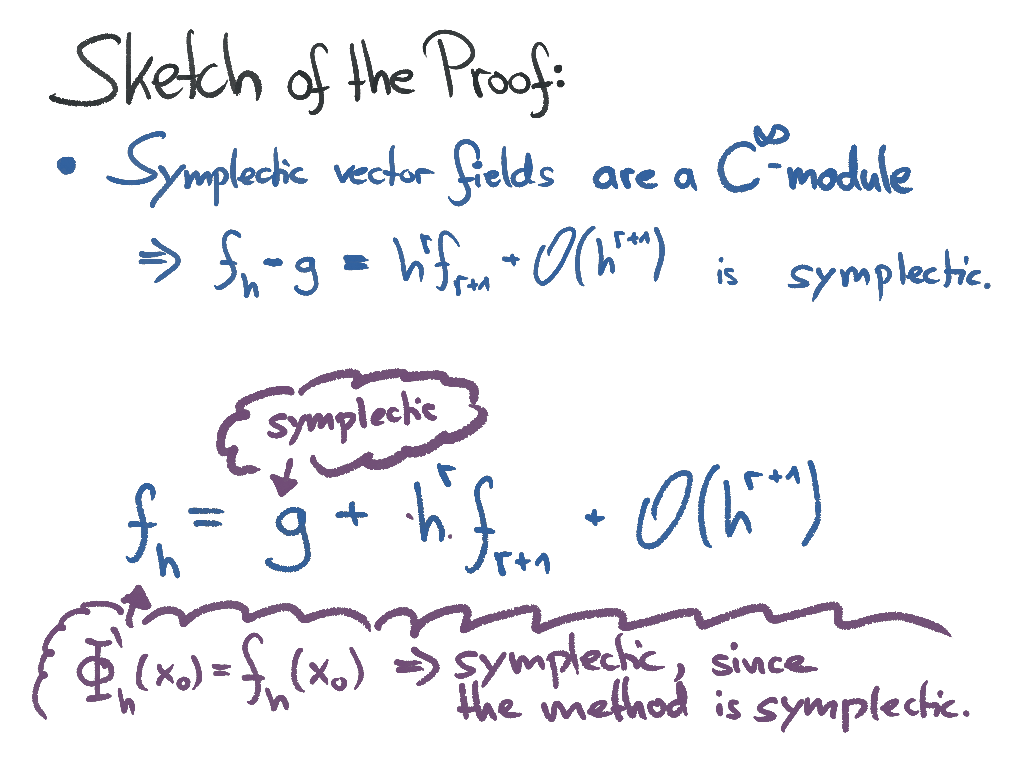 Sketch of the Proof:
• Symplectic vector fields are a C^∞-module
⇒ f_h - g = h^r f_{r+1} + O(h^{r+1}) is symplectic.
symplectic
f_h = g + h^r f_{r+1} + O(h^{r+1})
Φ'_h(x₀) = f_h(x₀) ⇒ symplectic, since
the method is symplectic.